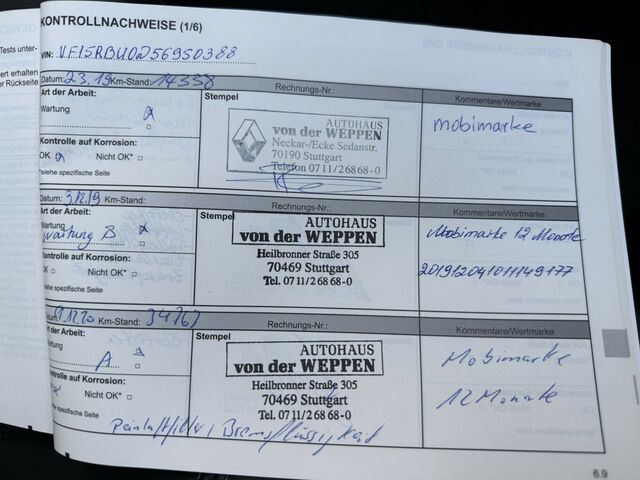 KONTROLLNACHWEISE (1/6)
Tests unter-
VIN: VF15RBU0A56950388
ert erhalten
r Rückseite
Datum: 2.3.19 Km-Stand: 14338 Rechnungs-Nr.: Kommentare/Wertmarke
Art der Arbeit: Stempel
Wartung
Kontrolle auf Korrosion:
OK Nicht OK*
*siehe spezifische Seite
AUTOHAUS
von der WEPPEN
Neckar-/Ecke Sedanstr.
70190 Stuttgart
Telefon 07 11/2 68 68-0
Mobimarke
Datum: 3.12.19 Km-Stand: Rechnungs-Nr.: Kommentare/Wertmarke
Art der Arbeit: Stempel
Wartung
Wartung B
Kontrolle auf Korrosion:
OK Nicht OK*
he spezifische Seite
AUTOHAUS
von der WEPPEN
Heilbronner Straße 305
70469 Stuttgart
Tel. 07 11/2 68 68-0
Mobimarke 12 Monate
20191204101149177
Km-Stand: 34767 Rechnungs-Nr.: Kommentare/Wertmarke
rt der Arbeit: Stempel
artung
A
ntrolle auf Korrosion:
Nicht OK*
he spezifische Seite
AUTOHAUS
von der WEPPEN
Heilbronner Straße 305
70469 Stuttgart
Tel. 07 11/2 68 68-0
Mobimarke
12 Monate
Bremsflüssigkeit
6.9